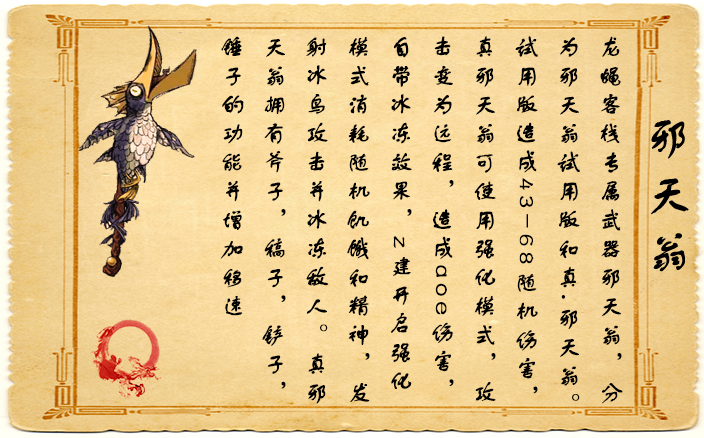 邪天翁
龙蝇客栈专属武器邪天翁，分
为邪天翁试用版和真.邪天翁。
试用版造成43—68随机伤害，
真邪天翁可使用强化模式，攻
击变为远程，造成aoe伤害，
自带冰冻效果，Z建开启强化
模式消耗随机饥饿和精神，发
射冰鸟攻击并冰冻敌人。真邪
天翁拥有斧子，稿子，铲子，
锤子的功能并增加移速